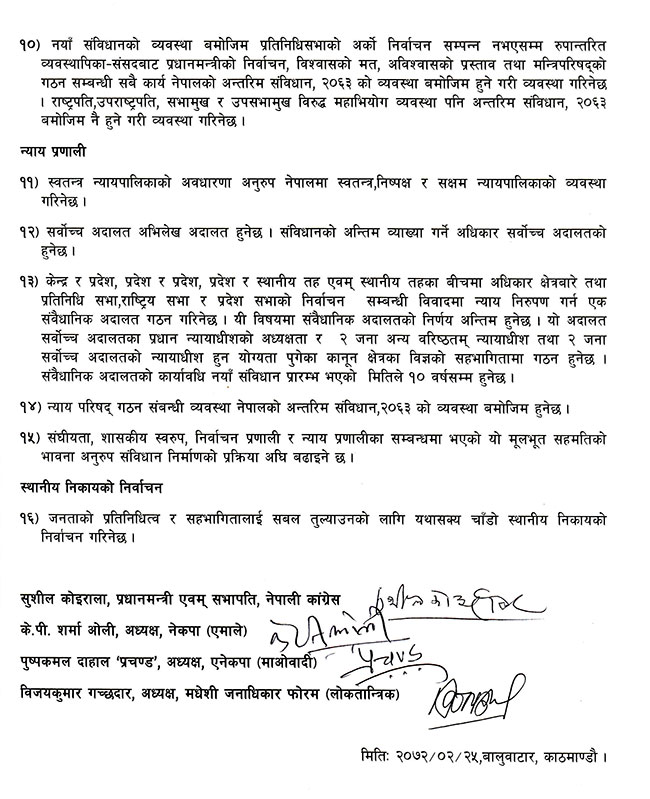 १०) नयाँ संविधानको व्यवस्था बमोजिम प्रतिनिधिसभाको अर्को निर्वाचन सम्पन्न नभएसम्म रुपान्तरित
व्यवस्थापिका-संसदबाट प्रधानमन्त्रीको निर्वाचन, विश्वासको मत, अविश्वासको प्रस्ताव तथा मन्त्रिपरिषद्को
गठन सम्बन्धी सबै कार्य नेपालको अन्तरिम संविधान, २०६३ को व्यवस्था बमोजिम हुने गरी व्यवस्था गरिनेछ
। राष्ट्रपति,उपराष्ट्रपति, सभामुख र उपसभामुख विरुद्ध महाभियोग व्यवस्था पनि अन्तरिम संविधान, २०६३
बमोजिम नै हुने गरी व्यवस्था गरिनेछ ।
न्याय प्रणाली
११) स्वतन्त्र न्यायपालिकाको अवधारणा अनुरुप नेपालमा स्वतन्त्र,निष्पक्ष र सक्षम न्यायपालिकाको व्यवस्था
गरिनेछ ।
१२) सर्वोच्च अदालत अभिलेख अदालत हुनेछ । संविधानको अन्तिम व्याख्या गर्ने अधिकार सर्वोच्च अदालतको
हुनेछ ।
१३) केन्द्र र प्रदेश, प्रदेश र प्रदेश, प्रदेश र स्थानीय तह एवम् स्थानीय तहका बीचमा अधिकार क्षेत्रबारे तथा
प्रतिनिधि सभा,राष्ट्रिय सभा र प्रदेश सभाको निर्वाचन सम्बन्धी विवादमा न्याय निरुपण गर्न एक
संवैधानिक अदालत गठन गरिनेछ । यी विषयमा संवैधानिक अदालतको निर्णय अन्तिम हुनेछ । यो अदालत
सर्वोच्च अदालतका प्रधान न्यायाधीशको अध्यक्षता र २ जना अन्य वरिष्ठतम् न्यायाधीश तथा २ जना
सर्वोच्च अदालतको न्यायाधीश हुन योग्यता पुगेका कानून क्षेत्रका विज्ञको सहभागितामा गठन हुनेछ ।
संवैधानिक अदालतको कार्यावधि नयाँ संविधान प्रारम्भ भएको मितिले १० वर्षसम्म हुनेछ ।
१४) न्याय परिषद् गठन संबन्धी व्यवस्था नेपालको अन्तरिम संविधान,२०६३ को व्यवस्था बमोजिम हुनेछ ।
१५) संघीयता, शासकीय स्वरुप, निर्वाचन प्रणाली र न्याय प्रणालीका सम्बन्धमा भएको यो मूलभूत सहमतिको
भावना अनुरुप संविधान निर्माणको प्रक्रिया अघि बढाइने छ ।
स्थानीय निकायको निर्वाचन
१६) जनताको प्रतिनिधित्व र सहभागितालाई सबल तुल्याउनको लागि यथासक्य चाँडो स्थानीय निकायको
निर्वाचन गरिनेछ ।
सुशील कोइराला, प्रधानमन्त्री एवम् सभापति, नेपाली कांग्रेस
के.पी. शर्मा ओली, अध्यक्ष, नेकपा (एमाले)
पुष्पकमल दाहाल ‘प्रचण्ड’, अध्यक्ष, एनेकपा (माओवादी) प्रचण्ड
विजयकुमार गच्छदार, अध्यक्ष, मधेशी जनाधिकार फोरम (लोकतान्त्रिक)
मितिः २०७२/०२/२५,बालुवाटार, काठमाण्डौ ।